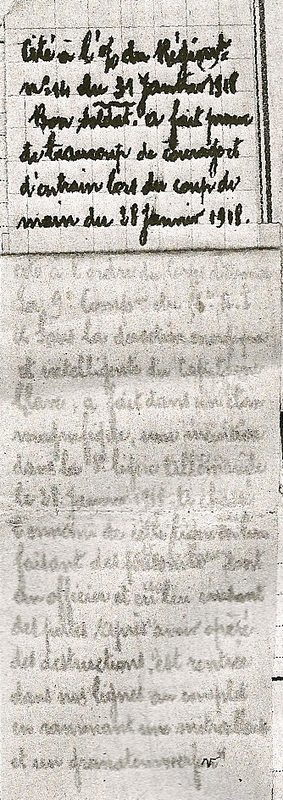 Cité à l'o/ du Régiment
n° 14 du 31 Janvier 1918
Bon soldat. a fait preuve
de beaucoup de courage et
d'entrain lors du coup de
main du 28 Janvier 1918.
cité à l'ordre du Corps d'Armée
La 9e Comp du R.I
et sous la direction énergique
et intelligente du Capitaine
a fait dans un élan
magnifique, une incursion
dans la ligne allemande
le 28 Janvier 1918
l'ennemi de cette
faisant des prisonniers dont
un officier et en lui causant
des pertes. Après avoir opéré
des destructions, est rentrée
dans nos lignes au complet
en ramenant une mitrailleuse
et un